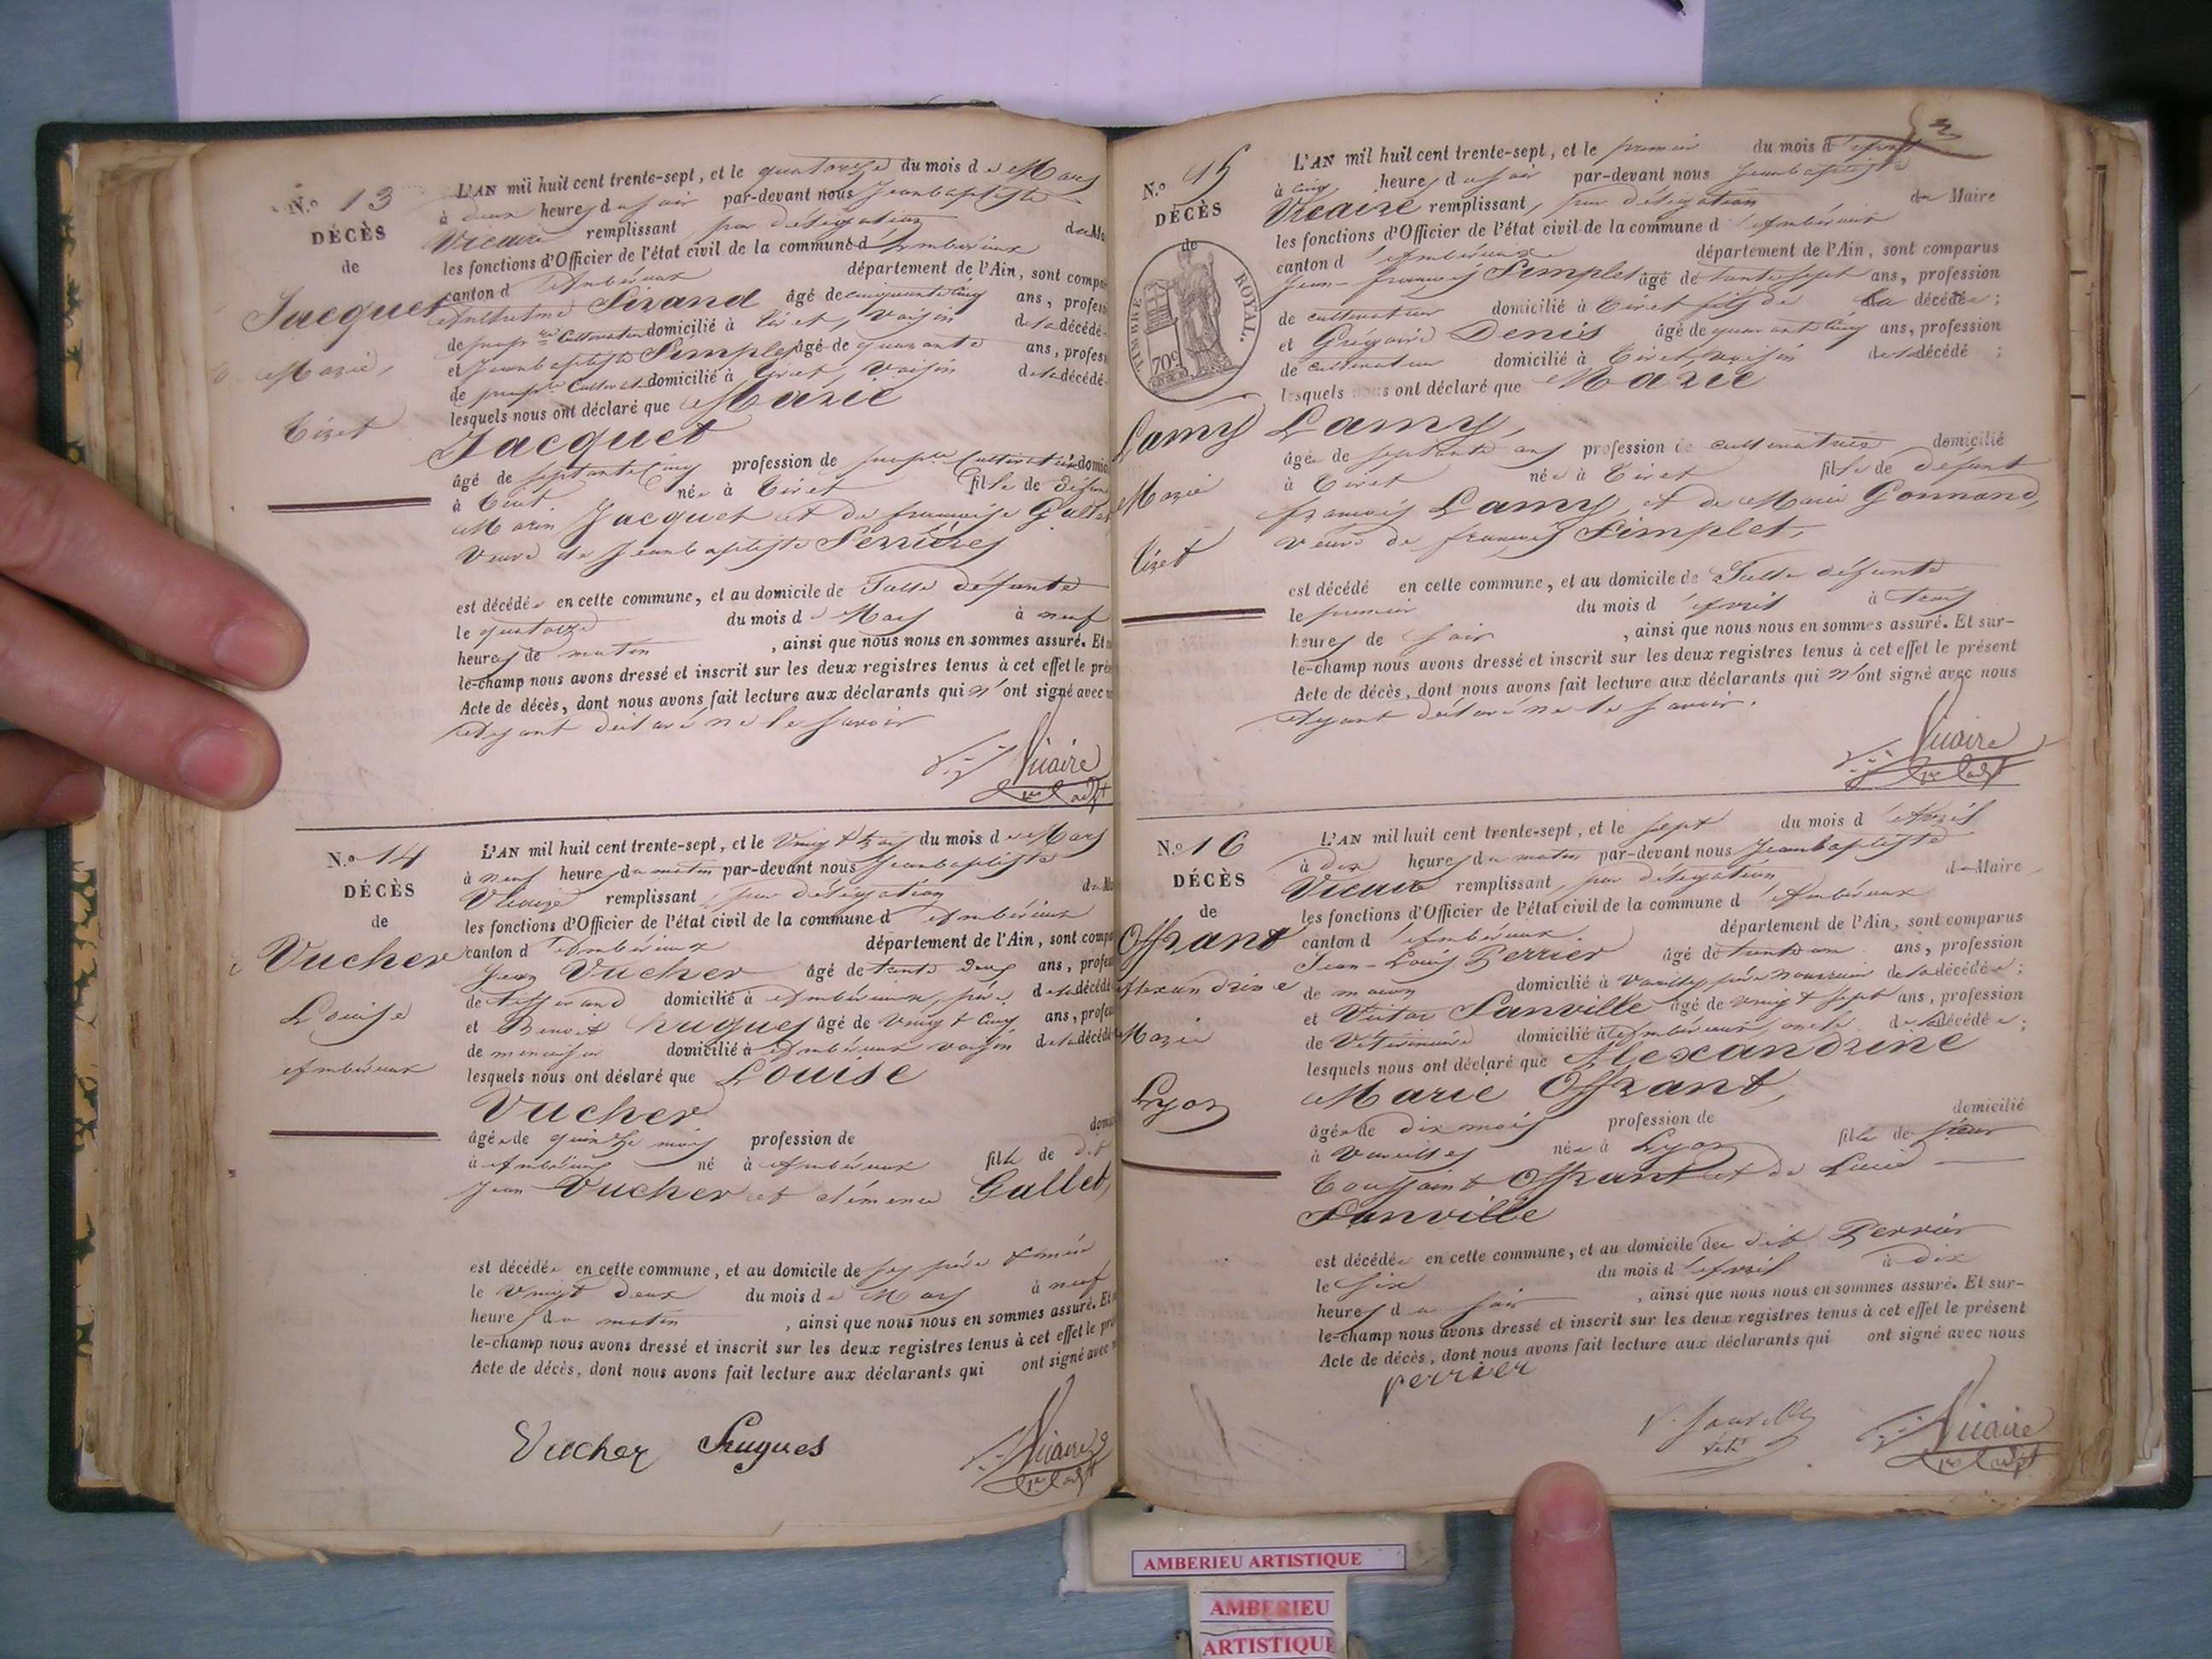 N.o 13
DÉCÈS
de
Jacquet
Marie,
Tiret
L'AN mil huit cent trente-sept, et le quatorze du mois de Mars
à deux heures du soir par-devant nous Jeanbaptiste
Vicaire remplissant par délégation du Ma
les fonctions d'Officier de l'état civil de la commune d'Ambérieux
canton d'Ambérieux département de l'Ain, sont compa
Anthelme Sirand âgé de cinquante cinq ans, profes
de Cultivateur domicilié à Tiret, voisin de la décédé
et Jeanbaptiste Simplet âgé de quarante ans, profess
de Cultivat domicilié à Tiret, voisin de la décédé
lesquels nous ont déclaré que Marie
Jacquet
âgé de septante cinq profession de Cultivatrice domic
à Tiret. née à Tiret fille de défunt
Marin Jacquet et de françoise
Veuve de Jeanbaptiste Serrières
est décédée en cette commune, et au domicile de Jalle défunte
le quatorze du mois de Mars à neuf
heures de matin, ainsi que nous nous en sommes assuré. Et
le-champ nous avons dressé et inscrit sur les deux registres tenus à cet effet le pré
Acte de décès, dont nous avons fait lecture aux déclarants qui n'ont signé avec
Ayant déclaré ne le savoir
Vicaire
N.o 14
DÉCÈS
de
Vucher
Louise
Ambérieux
L'AN mil huit cent trente-sept, et le Vingt trois du mois de Mars
à neuf heures du matin par-devant nous Jeanbaptiste
Vicaire remplissant par délégation du Ma
les fonctions d'Officier de l'état civil de la commune d'Ambérieux
canton d'Ambérieux département de l'Ain, sont compa
Jean Vucher âgé de trente deux ans, profes
de Tisserand domicilié à Ambérieux, père de la décédé
et Benoit hugues âgé de Vingt cinq ans, profes
de menuisier domicilié à Ambérieux voisin de la décédé
lesquels nous ont déclaré que Louise
Vucher
âgée de quinze mois profession de domi
à Ambérieux né à Ambérieux fille de dit
Jean Vucher et clémence Gullet,
est décédée en cette commune, et au domicile de ses père & mère
le Vingt deux du mois de Mars à neuf
heures du matin, ainsi que nous nous en sommes assuré. Et
le-champ nous avons dressé et inscrit sur les deux registres tenus à cet effet le pré
Acte de décès, dont nous avons fait lecture aux déclarants qui ont signé avec
Vucher Hugues
Vicaire
N.o 15
DÉCÈS
de
TIMBRE ROYAL.
70c
Lamy
Marie
Tiret
L'AN mil huit cent trente-sept, et le premier du mois d'Avril
à cinq heures du soir par-devant nous Jeanbaptiste
Vicaire remplissant, par délégation du Maire
les fonctions d'Officier de l'état civil de la commune d'Ambérieux
canton d'Ambérieux département de l'Ain, sont comparus
Jean-françois Simplet âgé de trente sept ans, profession
de cultivateur domicilié à Tiret fils de la décédée;
et Grégoire Denis âgé de quarante cinq ans, profession
de cultivateur domicilié à Tiret, voisin de la décédé;
lesquels nous ont déclaré que Marie
Lamy,
âgée de septante ans profession de cultivatrice domicilié
à Tiret née à Tiret fille de défunt
françois Lamy, et de Marie Gonnand,
veuve de françois Simplet,
est décédé en cette commune, et au domicile de Jalle défunte
le premier du mois d'Avril à trois
heures de soir, ainsi que nous nous en sommes assuré. Et sur-
le-champ nous avons dressé et inscrit sur les deux registres tenus à cet effet le présent
Acte de décès, dont nous avons fait lecture aux déclarants qui n'ont signé avec nous
Ayant déclaré ne le savoir.
Vicaire
N.o 16
DÉCÈS
de
Offrant
Alexandrine
Marie
Lyon
L'AN mil huit cent trente-sept, et le sept du mois d'Avril
à dix heures du matin par-devant nous Jeanbaptiste
Vicaire remplissant, par délégation du Maire
les fonctions d'Officier de l'état civil de la commune d'Ambérieux
canton d'Ambérieux département de l'Ain, sont comparus
Jean-Louis Perrier âgé de trente un ans, profession
de maçon domicilié à Vareilles, père nourricier de la décédée;
et Victor Sanville âgé de vingt & sept ans, profession
de Vétérinaire domicilié à Ambérieux, oncle de la décédée;
lesquels nous ont déclaré que Alexandrine
Marie Offrant,
âgée de dix mois profession de domicilié
à Vareilles née à Lyon fille de sieur
Toussaint Offrant et de Lucie
Sanville
est décédée en cette commune, et au domicile du dit Perrier
le six du mois d'Avril à dix
heures du soir, ainsi que nous nous en sommes assuré. Et sur-
le-champ nous avons dressé et inscrit sur les deux registres tenus à cet effet le présent
Acte de décès, dont nous avons fait lecture aux déclarants qui ont signé avec nous
perrier
Vicaire
AMBERIEU ARTISTIQUE
AMBERIEU
ARTISTIQUE